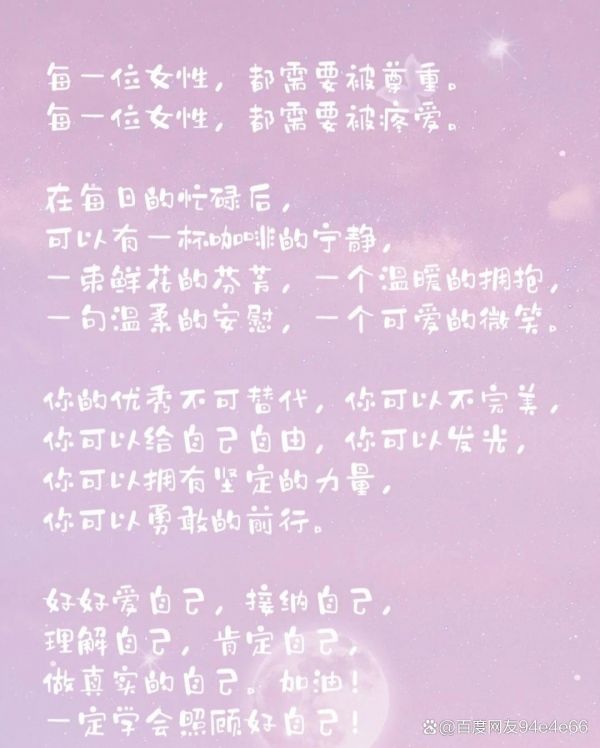 每一位女性，都需要被尊重。
每一位女性，都需要被疼爱。
在每日的忙碌后，
可以有一杯咖啡的宁静，
一束鲜花的芬芳，一个温暖的拥抱，
一句温柔的安慰，一个可爱的微笑。
你的优秀不可替代，你可以不完美，
你可以给自己自由，你可以发光，
你可以拥有坚定的力量，
你可以勇敢的前行。
好好爱自己，接纳自己，
理解自己，肯定自己，
做真实的自己。加油！
一定学会照顾好自己！
百度网友94e4e66